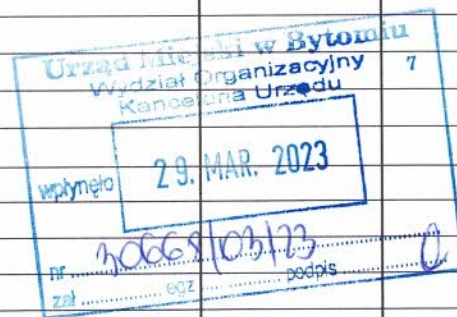 Urząd Miejski w Bytomiu
Wydział Organizacyjny
Kancelaria Urzędu
7
wpłynęło
29. MAR. 2023
nr 30668/03/23
zał. egz podpis